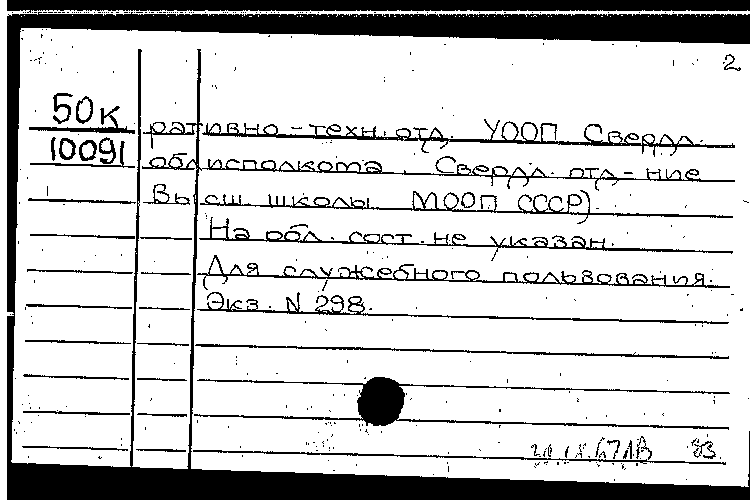 2
50К
10091
ративно-техн. отд. УООП Свердл.
облисполкома. Свердл. отд-ние
Высш. школы МООП СССР).
На обл. сост. не указан.
Для служебного пользования.
Экз. N 298.